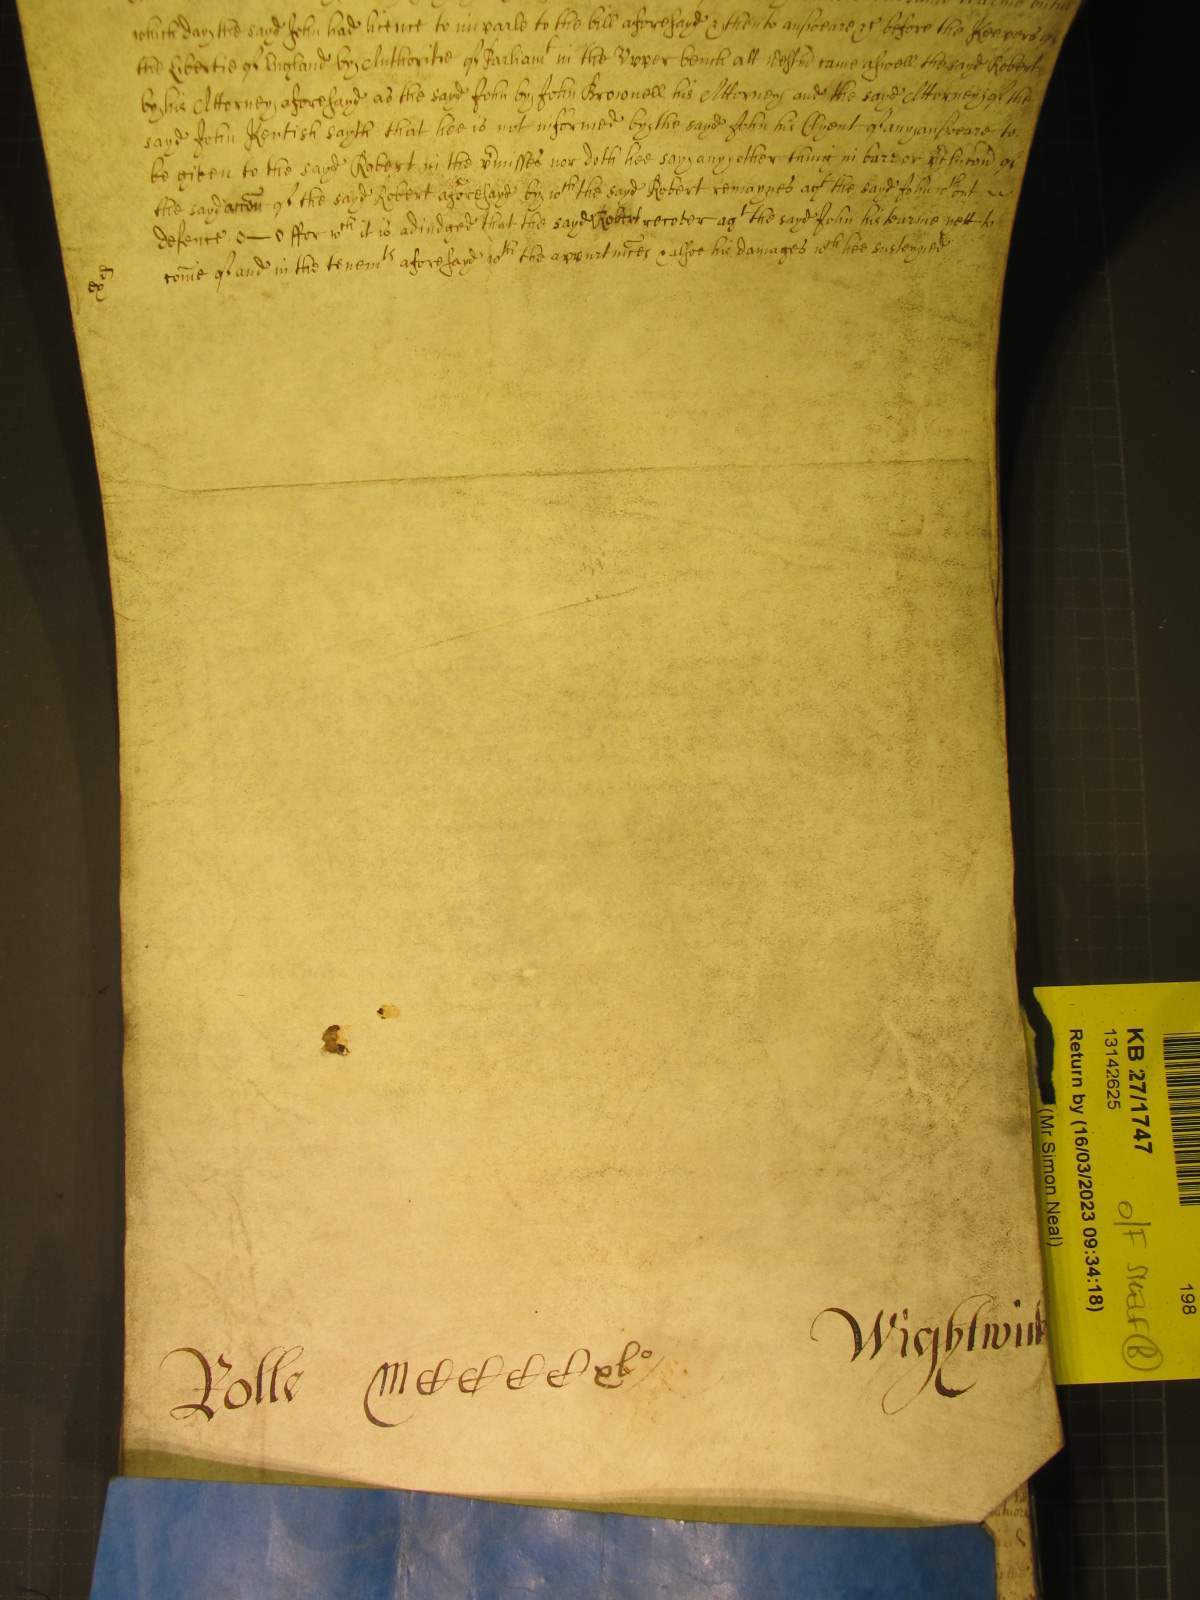 which day the sayd John had licence to imparle to the bill aforesayd & then to answeare &c before the Keepers of
the Libertie of England by Authoritie of Parliamt in the Upper bench att Westm̃ came aswell the sayd Robert
by his Attorney aforesayd as the sayd John by John Brownell his Attorney and the sayd Attorney of the
sayd John Kentish sayth that hee is not informed by the sayd John his Clyent of any answeare to
be given to the sayd Robert in the p̃misses nor doth hee say any other thing in barr or
the sayd accõn of the sayd Robert aforesayd by wch the sayd Robert remaynes agt the sayd John wthout
defence o—o ffor wch it is adiudged that the sayd Robert recover agt the sayd John his tearme yett to
come of and in the tenemts aforesayd wth the appurtñces & alsoe his damages wch hee susteyned
Rolle MCCCCCxlo
Wightwick
KB 27/1747
13142625
Return by (16/03/2023 09:34:18)
(Mr Simon Neal)
O/F
198